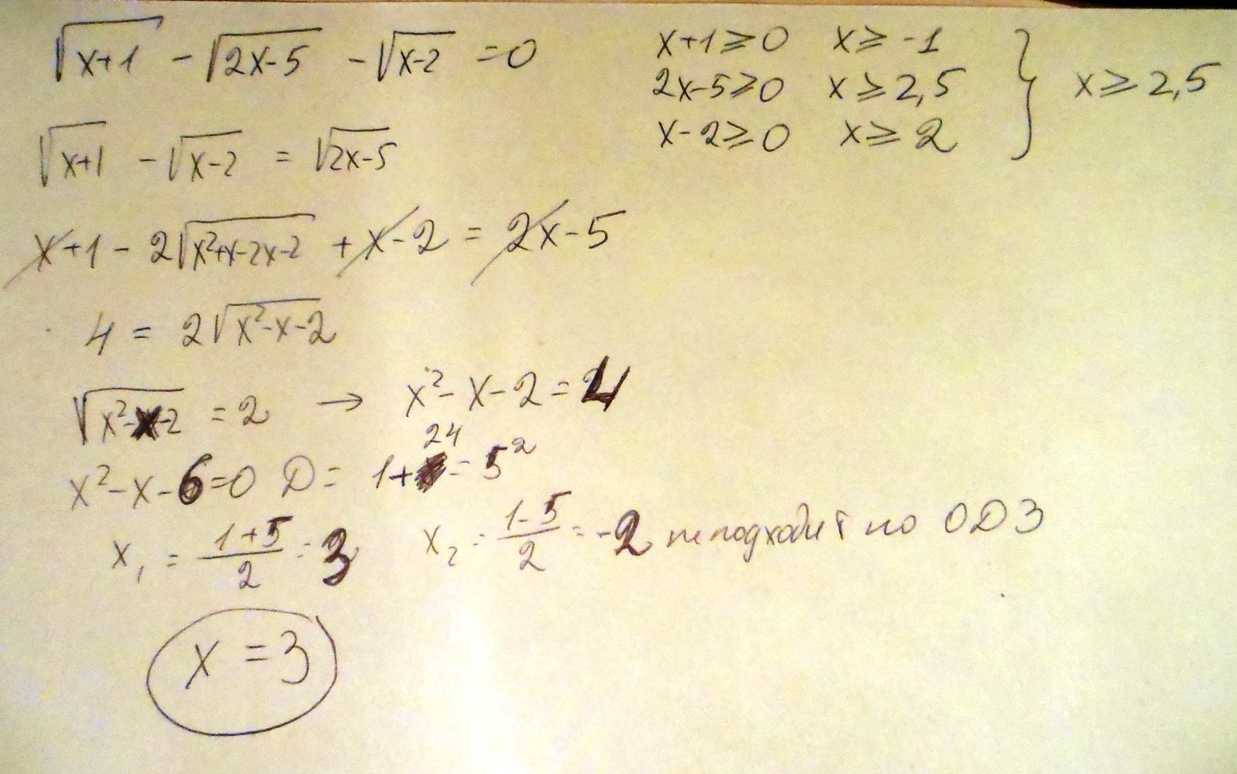 √(x+1) - √(2x-5) - √(x-2) = 0
x+1 ⩾ 0 x ⩾ -1
2x-5 ⩾ 0 x ⩾ 2,5 } x ⩾ 2,5
x-2 ⩾ 0 x ⩾ 2
√(x+1) - √(x-2) = √(2x-5)
x+1 - 2√(x²+x-2x-2) + x-2 = 2x-5
4 = 2√(x²-x-2)
√(x²-x-2) = 2 → x²-x-2 = 4
x²-x-6=0 D = 1+24 = 5²
x₁ = (1+5)/2 = 3 x₂ = (1-5)/2 = -2 не подходит по ОДЗ
x = 3